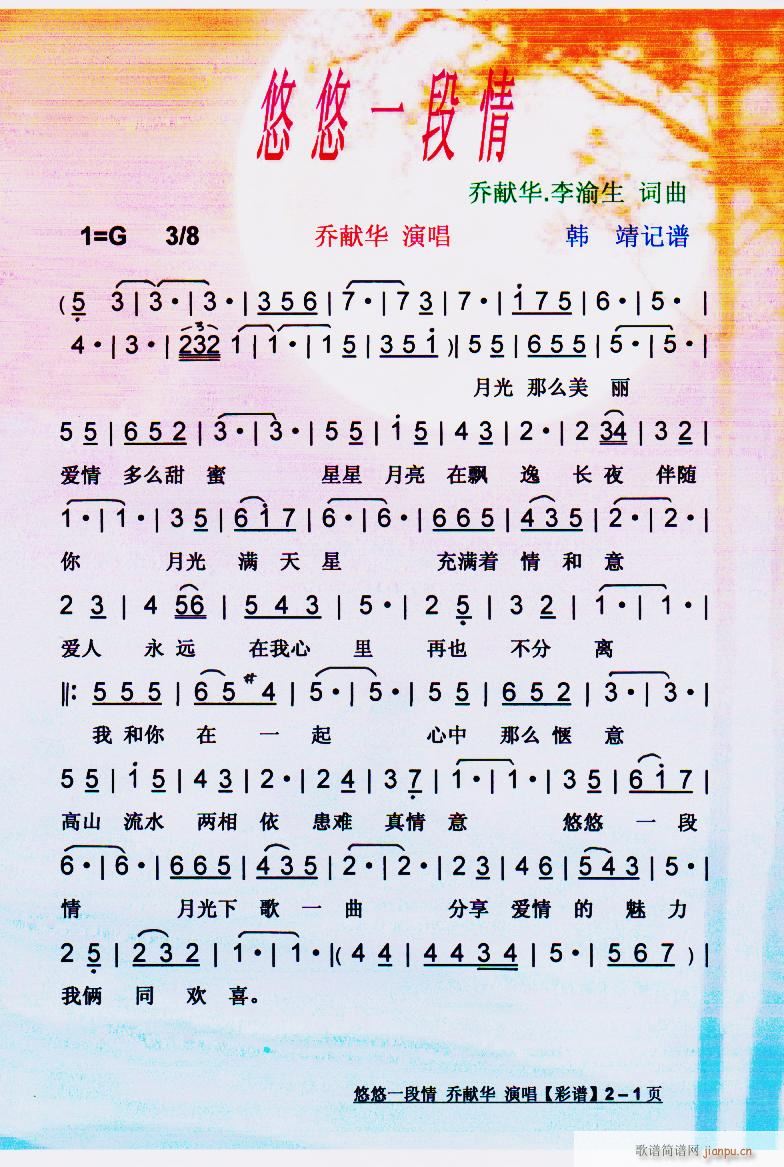 悠悠一段情
乔献华.李渝生 词曲
1=G 3/8 乔献华 演唱 韩 靖记谱
( 5 3 | 3· | 3· | 3 5 6 | 7· | 7 3 | 7· | 1 7 5 | 6· | 5· |
4· | 3· | 3 232 1 | 1· | 1 5 | 3 5 1 ) | 5 5 | 6 5 5 | 5· | 5· |
月光 那么美 丽
5 5 | 6 5 2 | 3· | 3· | 5 5 | 1 5 | 4 3 | 2· | 2 34 | 3 2 |
爱情 多么甜 蜜 星星 月亮 在飘 逸 长夜 伴随
1· | 1· | 3 5 | 6 1 7 | 6· | 6· | 6 6 5 | 4 3 5 | 2· | 2· |
你 月光 满 天 星 充满着 情 和 意
2 3 | 4 56 | 5 4 3 | 5· | 2 5 | 3 2 | 1· | 1· |
爱人 永 远 在我心 里 再也 不分 离
‖: 5 5 5 | 6 5 #4 | 5· | 5· | 5 5 | 6 5 2 | 3· | 3· |
我 和你 在 一 起 心中 那么 惬 意
5 5 | 1 5 | 4 3 | 2· | 2 4 | 3 7 | 1· | 1· | 3 5 | 6 1 7 |
高山 流水 两相 依 患难 真情 意 悠悠 一 段
6· | 6· | 6 6 5 | 4 3 5 | 2· | 2· | 2 3 | 4 6 | 5 4 3 | 5· |
情 月光下 歌 一 曲 分享 爱情 的 魅 力
2 5 | 2 3 2 | 1· | 1· | ( 4 4 | 4 4 3 4 | 5· | 5 6 7 ) |
我俩 同 欢 喜。
悠悠一段情 乔献华 演唱【彩谱】2－1页
歌谱简谱网 jianpu.cn